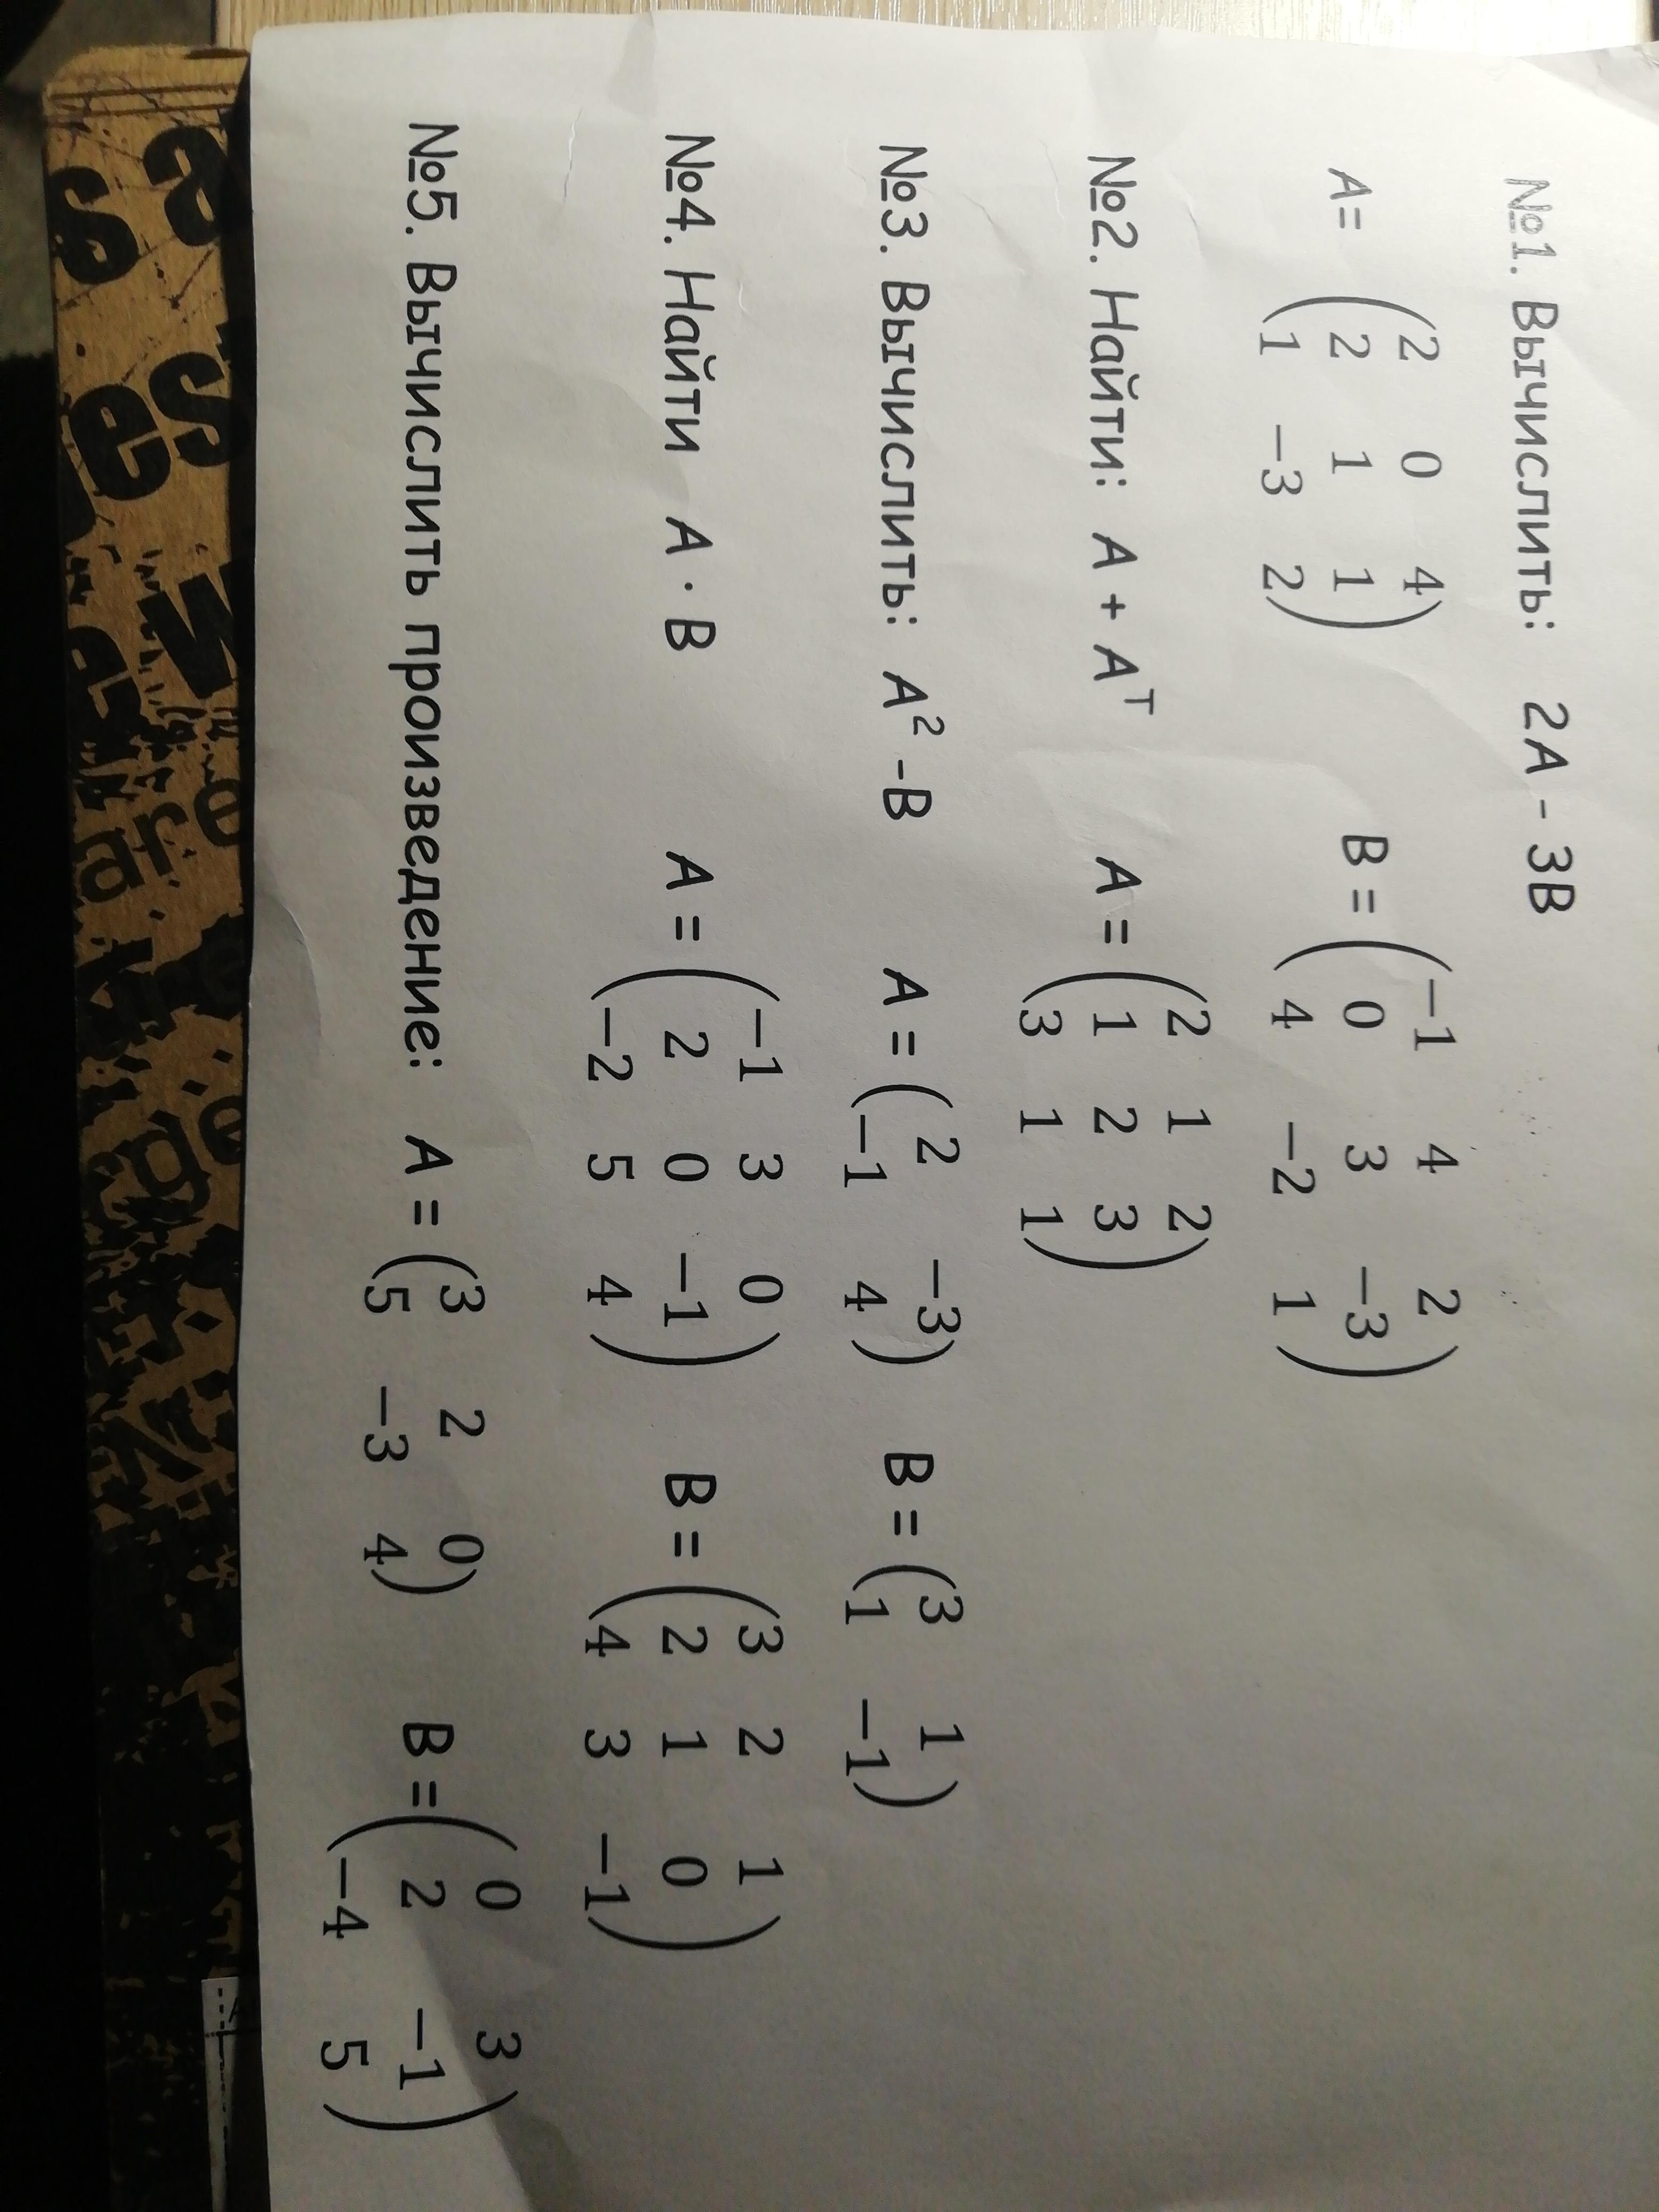 №1. Вычислить: 2A - 3B
A= (2 0 4
2 1 1
1 −3 2) B = (−1 4 2
0 3 −3
4 −2 1)
№2. Найти: A + Aᵀ A = (2 1 2
1 2 3
3 1 1)
№3. Вычислить: A² -B A = (2 −3
−1 4) B = (3 1
1 −1)
№4. Найти A · B A = (−1 3 0
2 0 −1
−2 5 4) B = (3 2 1
2 1 0
4 3 −1)
№5. Вычислить произведение: A = (3 2 0
5 −3 4) B = (0 3
2 −1
−4 5)